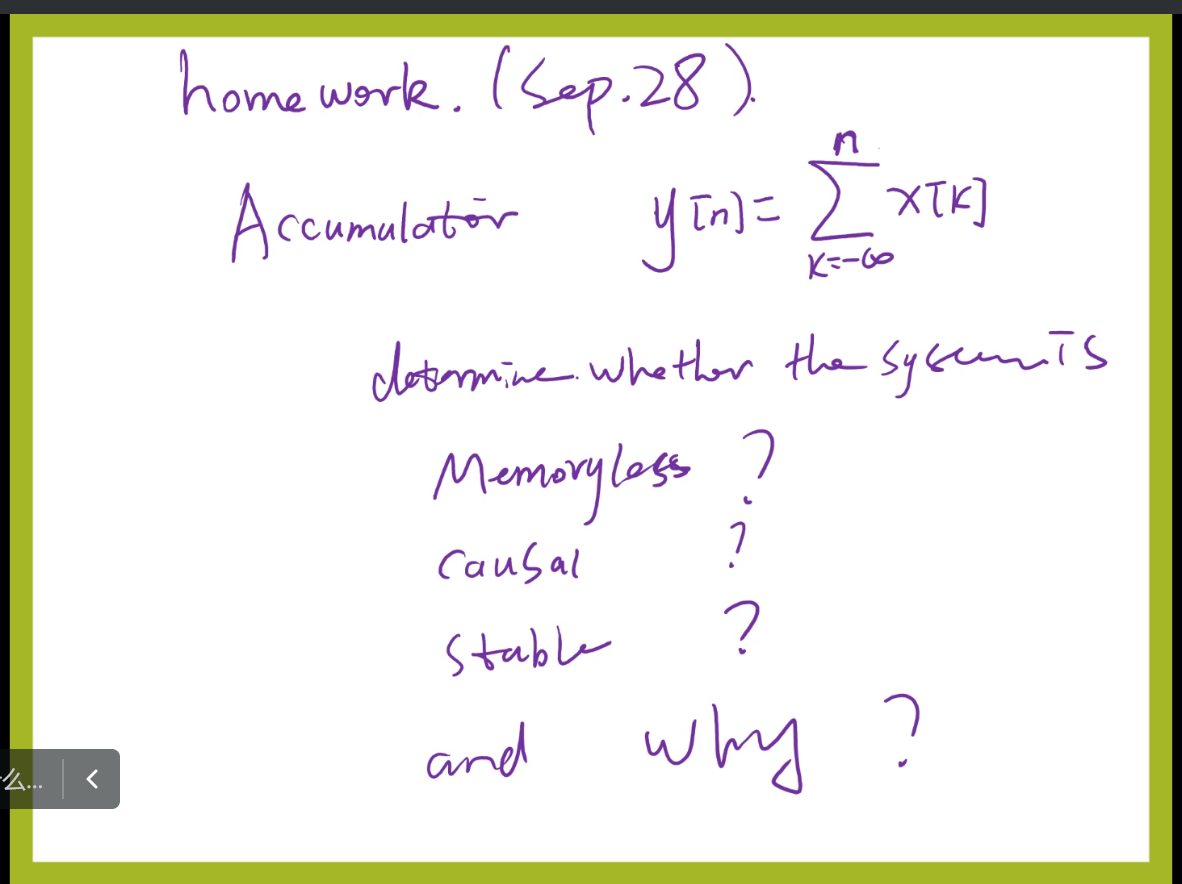 homework. (Sep.28).
Accumulator y[n] = ∑ x[k]
n
k=-∞
determine whether the system is
Memoryless ?
Causal ?
Stable ?
and why ?
么...